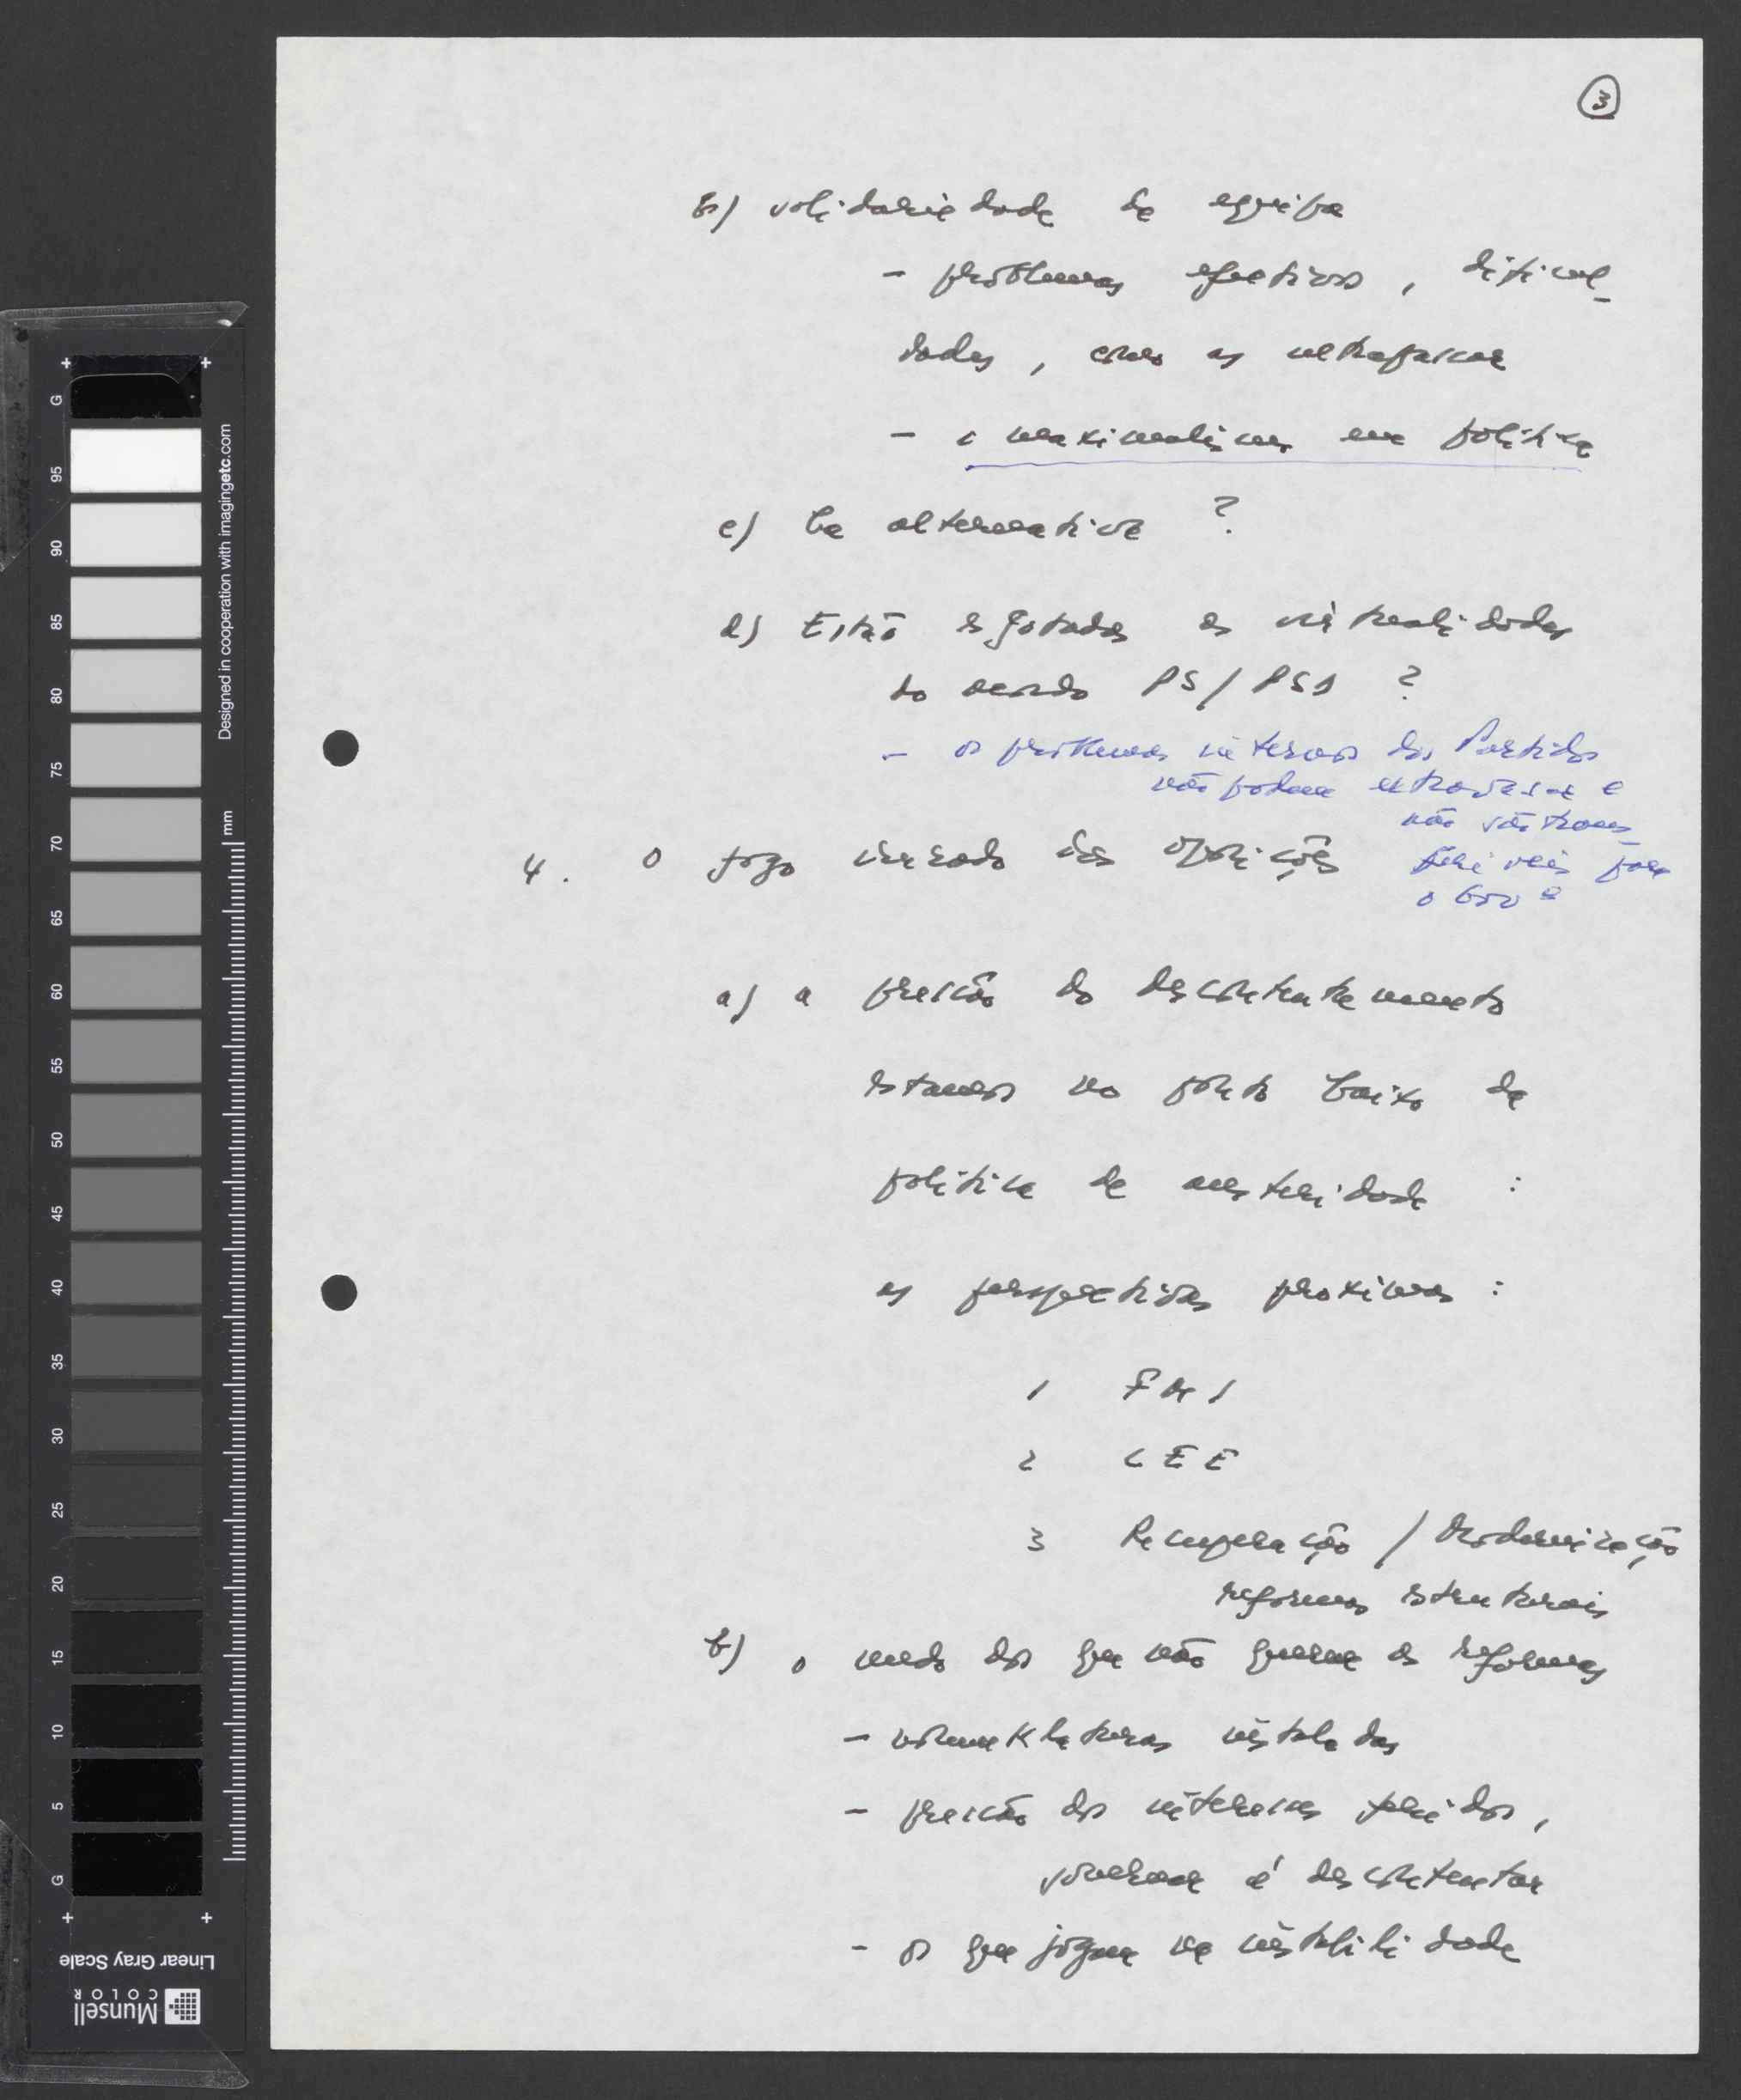 3
b) solidariedade de equipa
- problemas efectivos, dificul-
dades, como as ultrapassar
- o maximalismo em política
c) Há alternativa ?
d) Estão esgotadas as virtualidades
do acordo PS / PSD ?
- os problemas internos dos Partidos
não podem extravasar e
não são trans-
feríveis para
o Govº
4. O jogo das oposições
a) a pressão do descontentamento
estamos no ponto baixo da
política de austeridade :
as perspectivas próximas :
1 FMI
2 CEE
3 Recuperação / Modernização
reformas estruturais
b) o medo dos que não querem as reformas
- nomenklaturas instaladas
- pressão dos interesses feridos,
governar é descontentar
- os que jogam na instabilidade
G
95
90
85
80
75
70
65
60
55
50
45
40
35
30
25
20
15
10
5
G
mm
Designed in cooperation with imagingetc.com
Linear Gray Scale
Munsell
COLOR